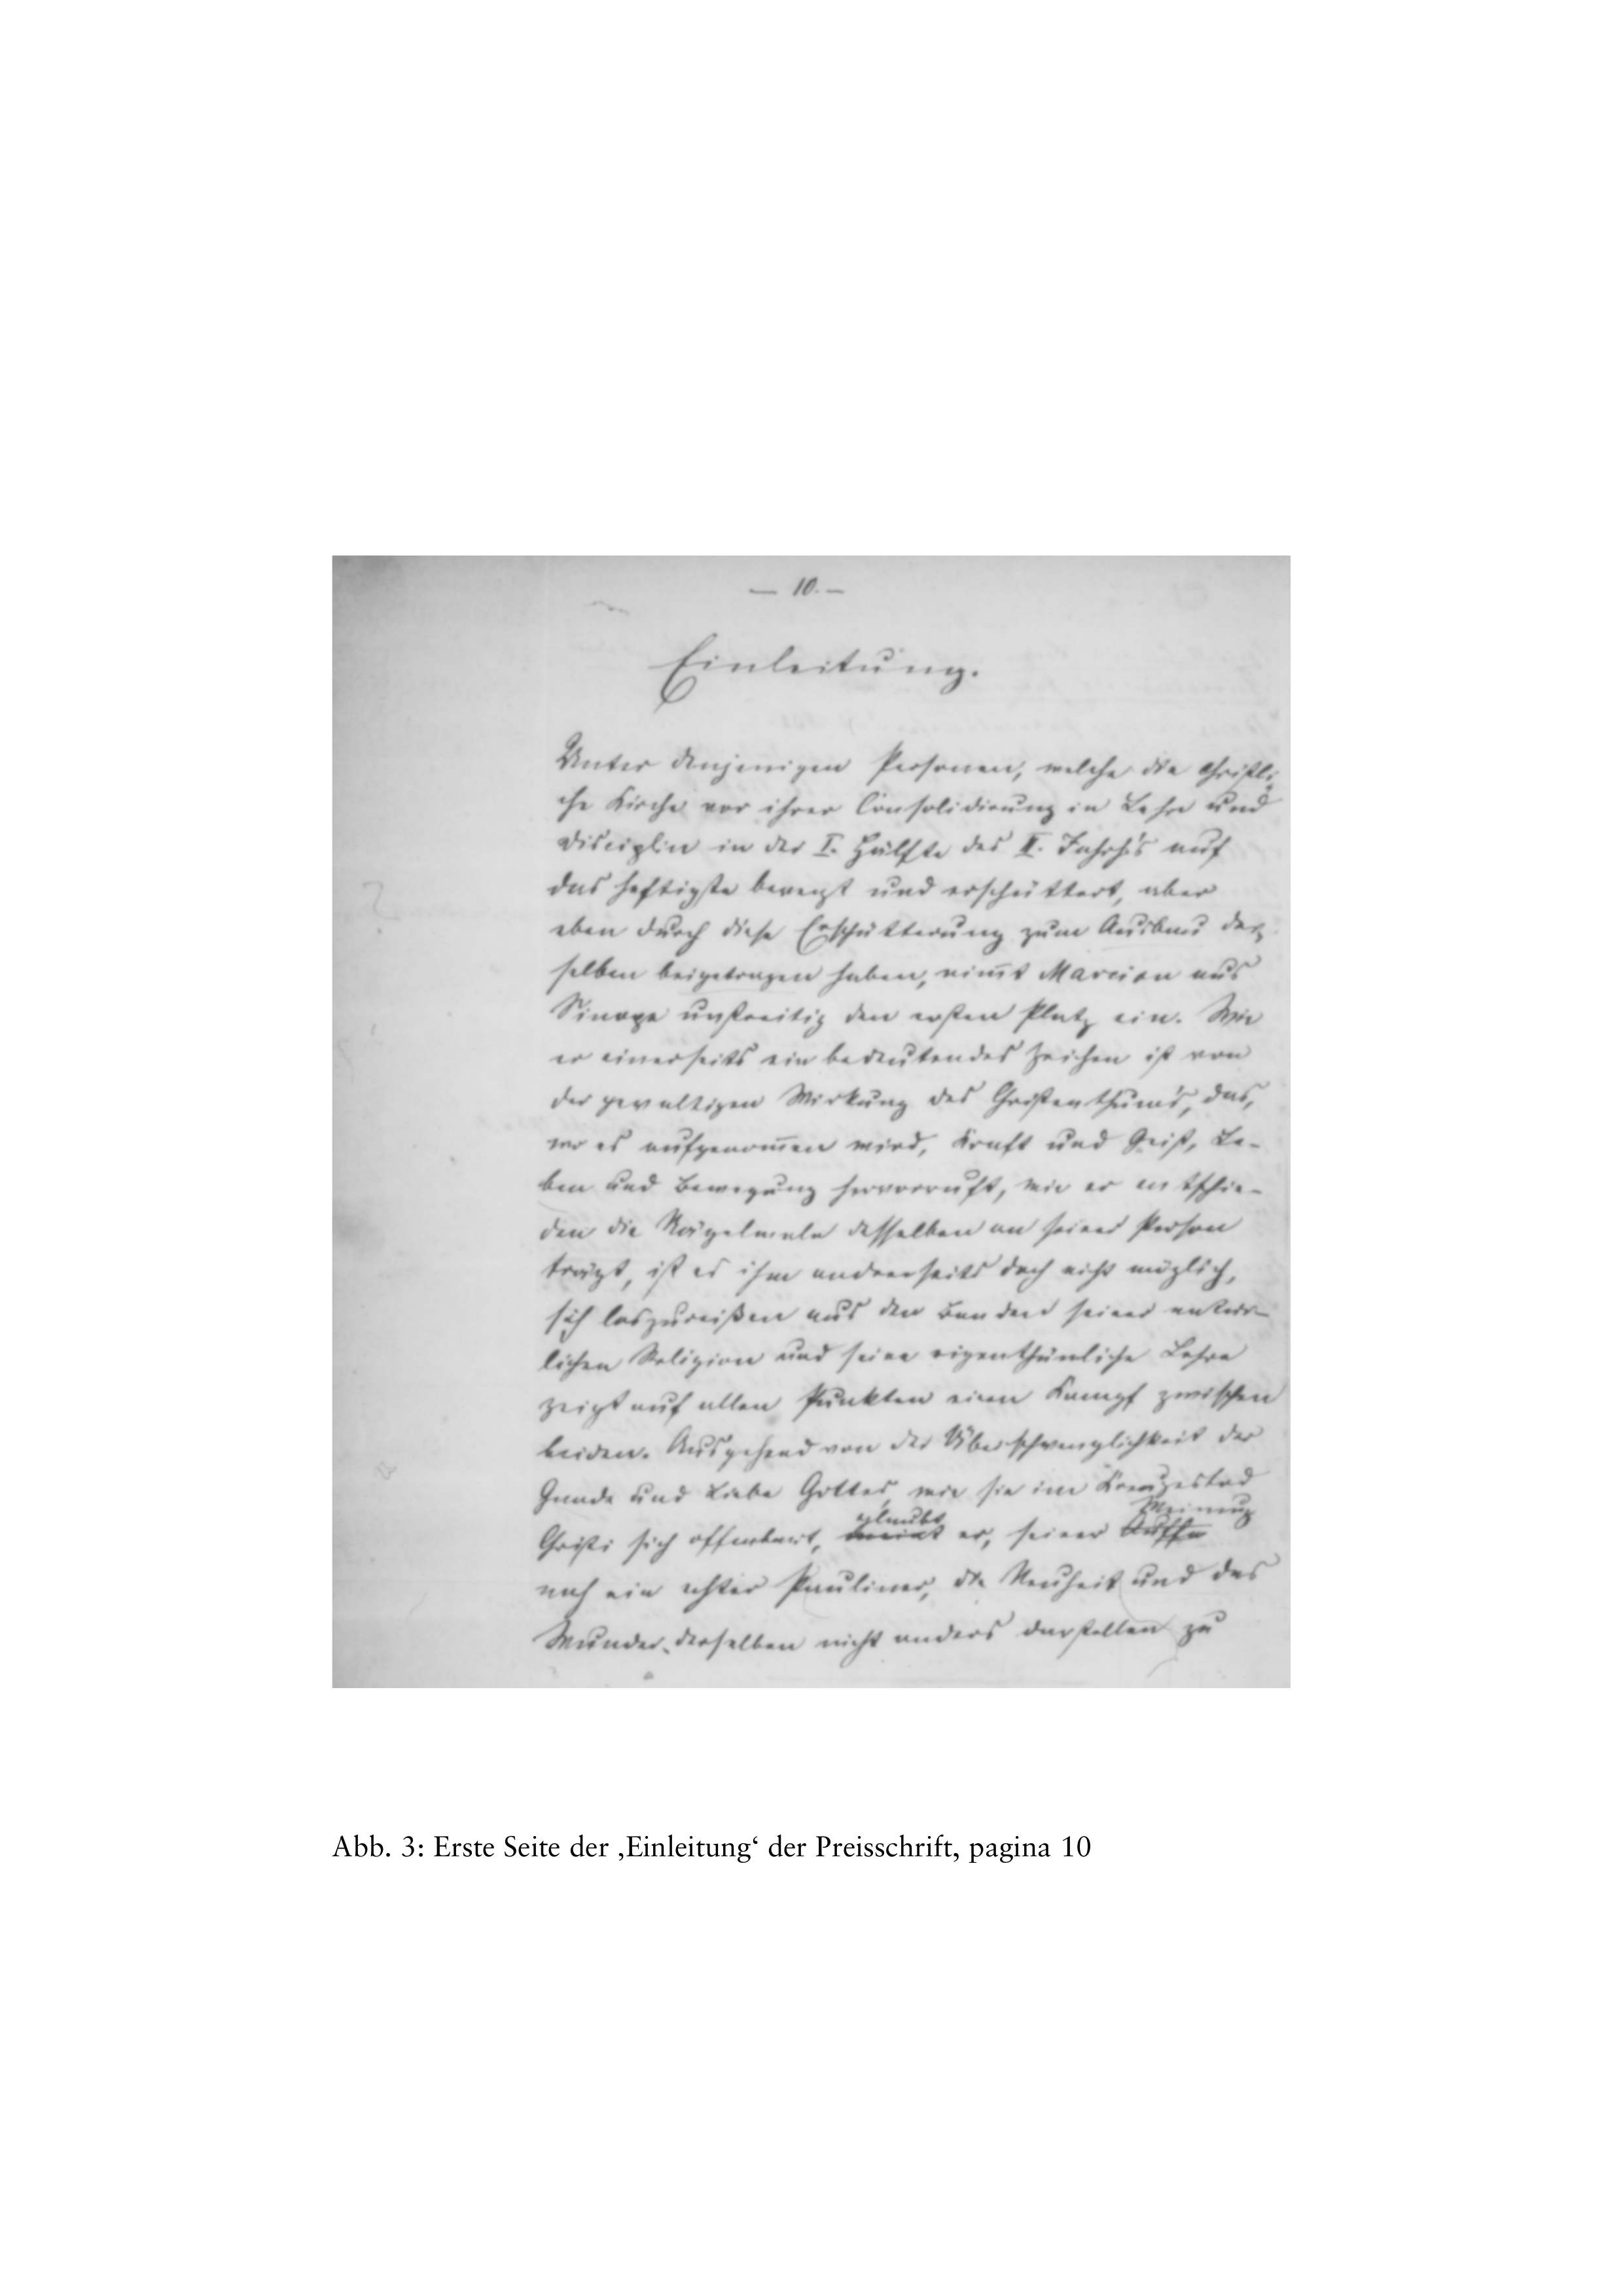 — 10. —
Einleitung.
Unter denjenigen Personen, welche die christli-
che Kirche vor ihrer Consolidirung in Lehre und
Disciplin in der I. Hälfte des II. Jahrh's auf
das heftigste bewegt und erschüttert, aber
eben durch diese Erschütterung zum Ausbau der-
selben beigetragen haben, nim̄t Marcion aus
Sinope unstreitig den ersten Platz ein. Wie
er einerseits ein bedeutendes Zeichen ist von
der gewaltigen Wirkung des Christenthum's, das,
wo es aufgenom̄en wird, Kraft und Geist, Le-
ben und Bewegung hervorruft, wie er entschie-
den die Nägelmale desselben an seiner Person
trägt, ist es ihm andrerseits doch nicht möglich,
sich loszureißen aus den Banden seiner natür-
lichen Religion und seine eigenthümliche Lehre
zeigt auf allen Punkten einen Kampf zwischen
beiden. Ausgehend von der Überschwenglichkeit der
Gnade und Liebe Gottes, wie sie im Kreuzestod
glaubt Meinung
Christi sich offenbart, meint er, seiner Auffa
nach ein echter Pauliner, die Neuheit und das
Wunder derselben nicht anders darstellen zu
Abb. 3: Erste Seite der ‚Einleitung‘ der Preisschrift, pagina 10